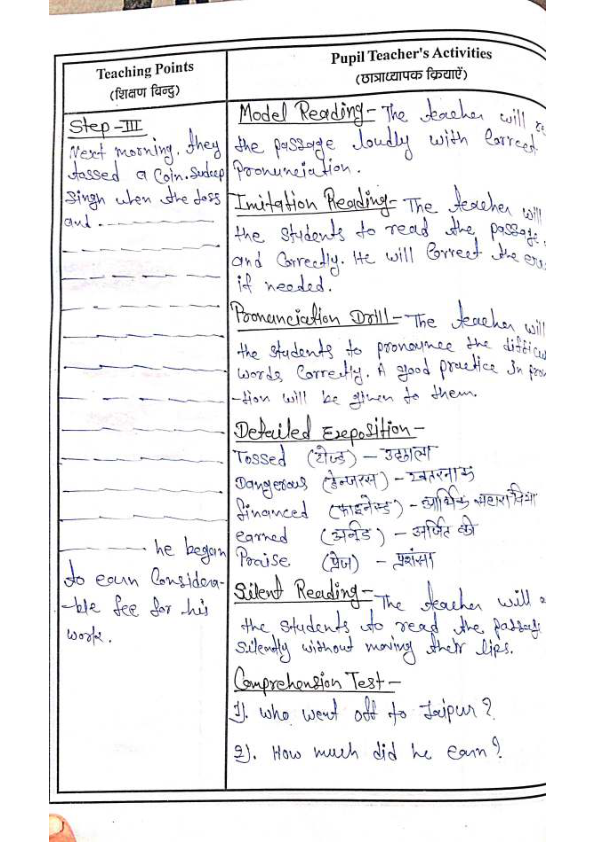 Teaching Points
(शिक्षण बिन्दु)
Pupil Teacher's Activities
(छात्राध्यापक क्रियाएँ)
Step-III
Next morning. they
tossed a Coin. Sudeep
Singh when the toss
and.
he began
to earn Considera-
-ble fee for his
work.
Model Reading- The teacher will
the passage loudly with Correct
Pronunciation.
Imitation Reading- The teacher will
the students to read the passage
and Correctly. He will Correct the
if needed.
Pronunciation Drill- The teacher will
the students to pronounce the
words, Correctly. A good practice In
-tion will be given to them.
Detailed Exeposition-
Tossed (टोज्ड) - उछाला
Dangerous (डेन्जरस) - खतरनाक
financed (फाइनेन्स्ड) - आर्थिक सहारा दिया
earned (अर्नड) - अर्जित की
Praise (प्रेज) - प्रशंसा
Silent Reading- The teacher will
the students to read the passage
Silently without moving their lips.
Comprehension Test-
1). Who went off to Jaipur?
2). How much did he earn?